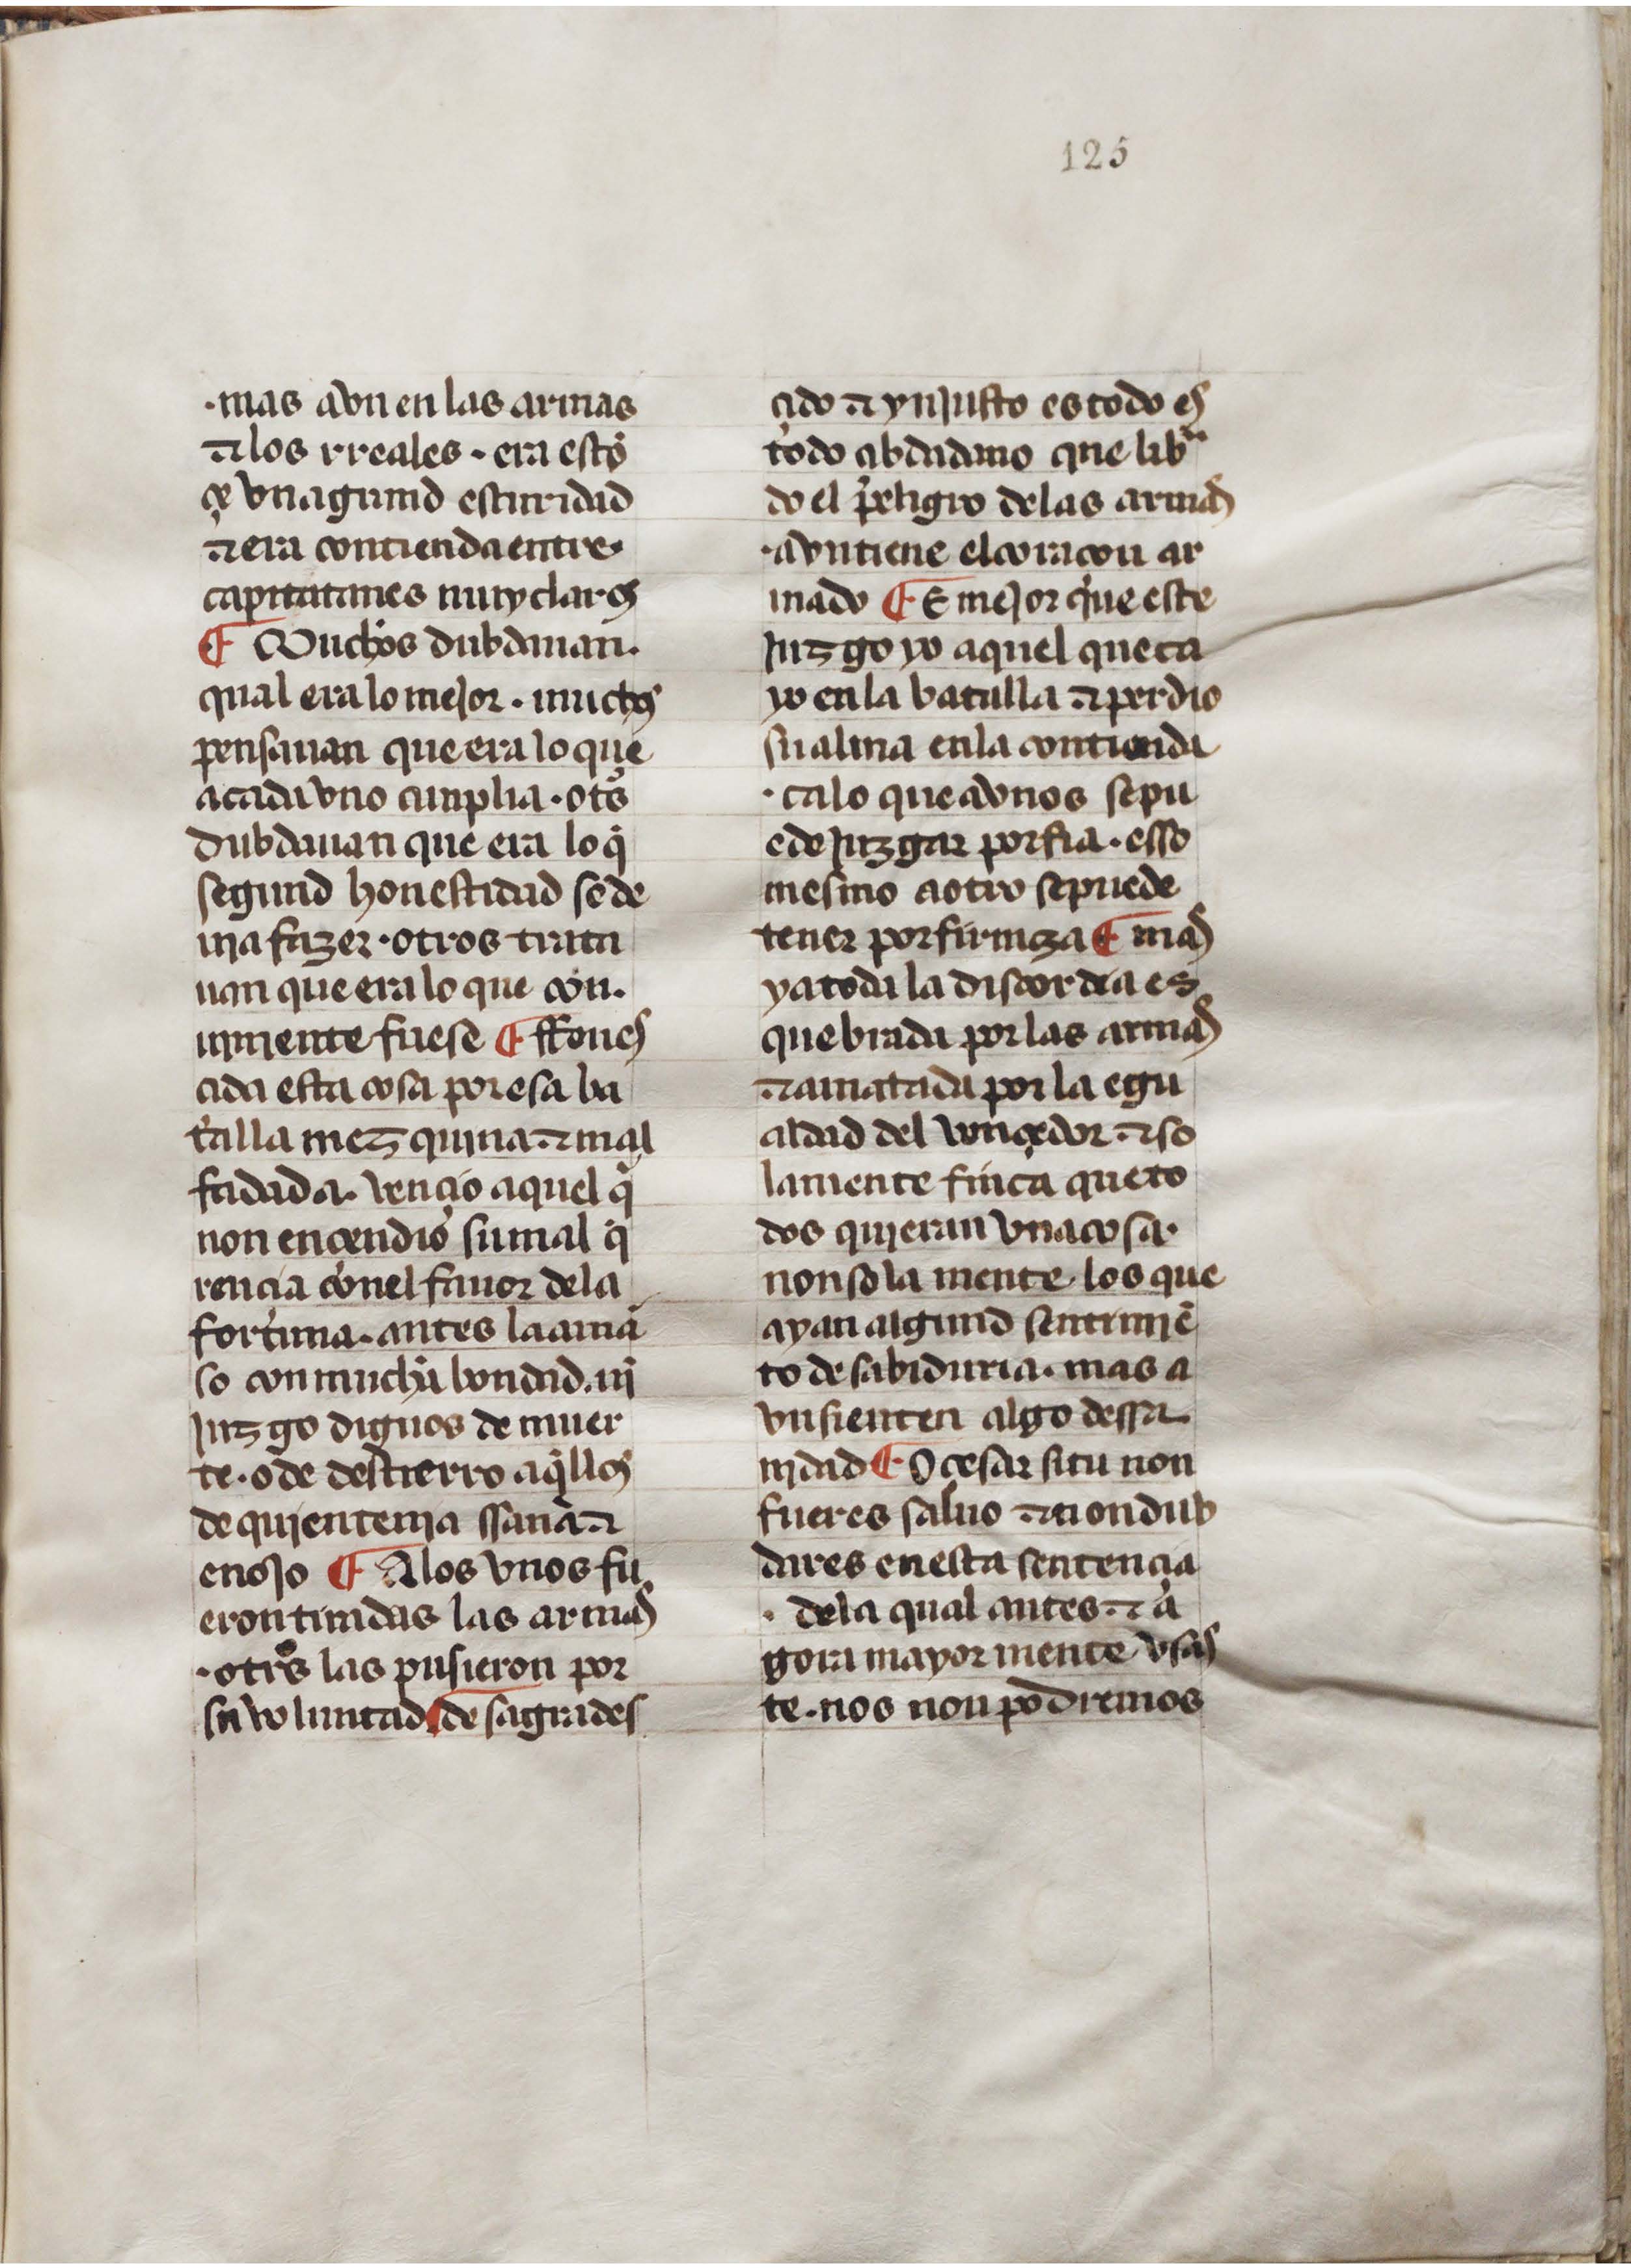 125
·mas avn en las armas
⁊ los rreales · era esto
çe vna grand escuridad
⁊ era contienda entre·
capitatanes muy claros
¶ Muchos dubdauan·
qual era lo mejor · muchos
pensauan que era lo que
a cada vno cunplia · ots̃
dubdauan que era lo q̃
segund honestidad se de
uja fazer · otros trata
uan que era lo que con·
uinjente fuese ¶ ffenes
cida esta cosa por esa ba
talla mezquina ⁊ mal
fadada· vencio aquel q̃
non encendio su mal q̃
rencia con el fauor dela
fortuna · antes la amã
so con mucha bondad · nj
juzgo dignos de muer
te · o de destierro aq̃llos
de quien tenja ssaña ⁊
enojo ¶ A los vnos fu
eron tiradas las armas
· otros las pusieron por
su voluntad ¶ desagrades
cido ⁊ ynjusto es todo es
todo cibdadano que libra
do el peligro delas armas
· avn tiene el coraçon ar
mado ¶ E mejor que este
juzgo yo aquel que ca
yo en la batalla ⁊ perdio
su alma en la contienda
· ca lo que a vnos se pu
ede juzgar porfia · esso
mesmo a otro se puede
tener por firmeza ¶ mas
ya toda la discordia es
quebrada por las armas
⁊ amatada por la egu
aldad del vençedor · ⁊ so
lamente finca que to
dos quieran vna cosa·
non sola mente los que
ayan algund sentimjẽ
to de sabiduria · mas a
vn sienten algo dessa
njdad ¶ O cesar si tu non
fueres saluo ⁊ non dub
dares en esta sentencia
· dela qual antes · ⁊ a
gora mayor mente vsas
te · nos non podremos